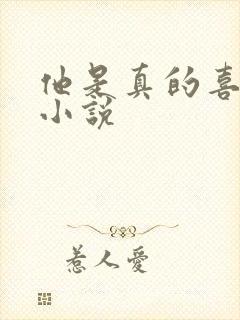 他是真的喜
小說
惹人愛